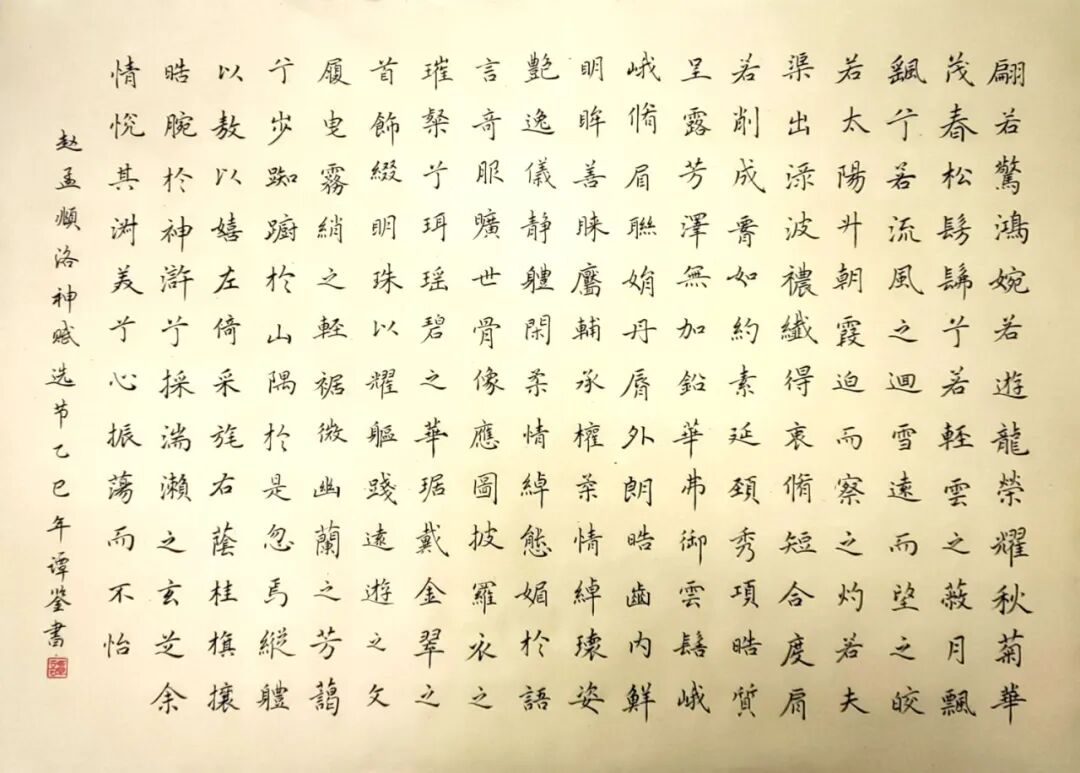 翩若驚鴻婉若遊龍榮耀秋菊華
茂春松髣髴兮若輕雲之蔽月飄
飖兮若流風之迴雪遠而望之皎
若太陽升朝霞迫而察之灼若夫
渠出淥波禯纖得衷脩短合度肩
若削成如約素延頸秀項皓質
呈露芳澤無加鉛華弗御雲髻峨
峨脩眉聯娟丹脣外朗皓齒內鮮
明眸善睞靨輔承權柔情綽瓌姿
艷逸儀静體閑柔情綽態媚於語
言奇服曠世骨像應圖披羅衣之
璀粲兮珥瑶碧之華琚戴金翠之
首飾綴明珠以耀軀踐遠遊之文
履曳霧綃之輕裾微幽蘭之芳藹
兮步踟躕於山隅於是忽焉縱體
以敖以嬉左倚采旄右蔭桂旗攘
皓腕於神滸兮採湍瀨之玄芝余
情悅其淑美兮心振蕩而不怡
赵孟頫洛神赋选节乙巳年谭鋻書